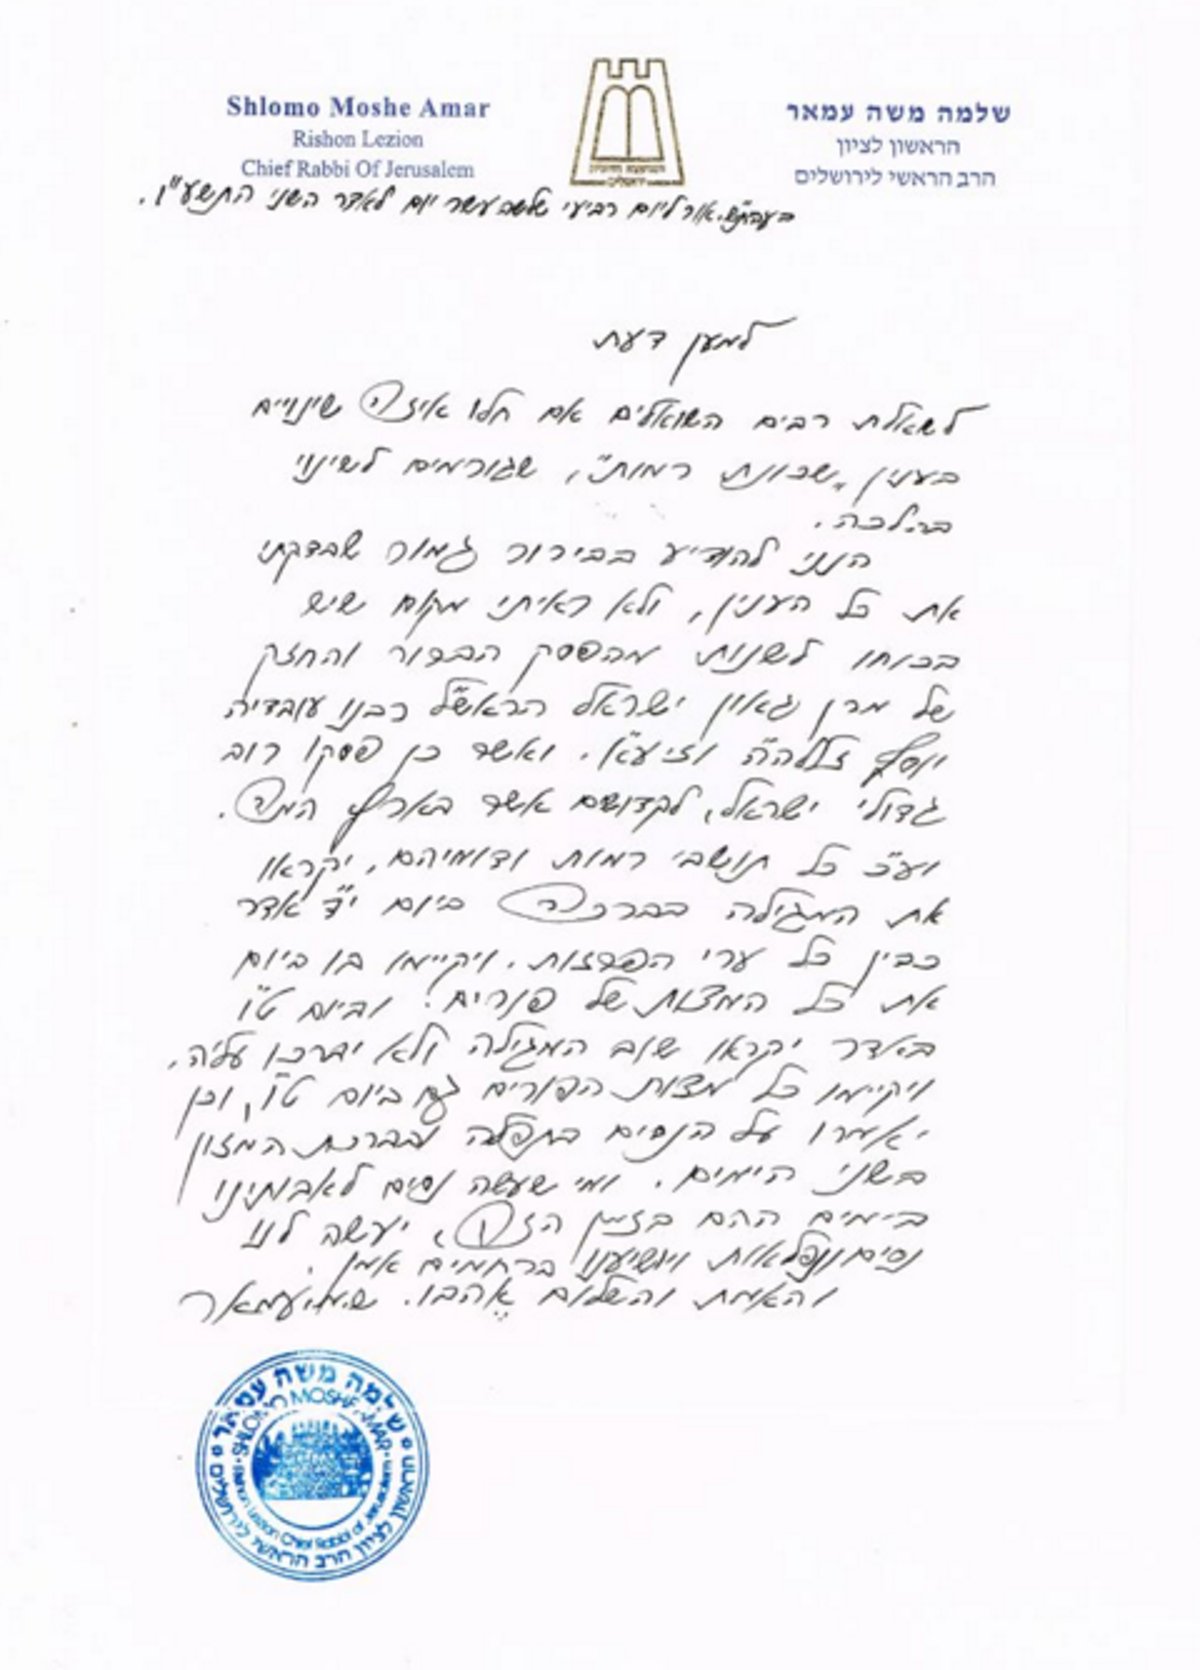 Shlomo Moshe Amar
Rishon Lezion
Chief Rabbi Of Jerusalem
שלמה משה עמאר
הראשון לציון
הרב הראשי לירושלים
אור ליום רביעי שלשה עשר יום לאדר השני התשע"ו.
למען דעת
לשאלת רבים השואלים אם חלו איזה שינויים
בענין "שכונת רמות", שגורמים לשינוי
בהלכה.
הנני להודיע בבירור גמור שבדקתי
את כל הענין, ולא ראיתי מקום שיש
בכוחו לשנות מהפסק הברור והחזק
של מרן גאון ישראל הראש"ל רבנו עובדיה
יוסף זצללה"ה וזיע"א. ואשר כן פסקו רוב
גדולי ישראל, לקדושים אשר בארץ המה.
וע"כ כל תושבי רמות ודומיהם, יקראו
את המגילה בברכה ביום י"ד אדר
כבין כל ערי הפרזות. ויקיימו בו ביום
את כל המצוות של פורים. וביום ט"ו
באדר יקראו שוב המגילה ולא יברכו עליה.
ויקיימו כל מצות הפורים גם ביום ט"ו, וכן
יאמרו על הנסים בתפלה ובברכת המזון
בשני הימים. ומי שעשה נסים לאבותינו
בימים ההם בזמן הזה, יעשה לנו
נסים ונפלאות ויושיענו ברחמים אמן.
והאמת והשלום אהבו.
שלמה משה עמאר
SHLOMO MOSHE AMAR
Rishon Lezion Chief Rabbi of Jerusalem
הראשון לציון הרב הראשי לירושלים